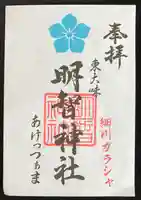 奉拝
東大味
明智神社
細川ガラシャ
あけっつぁま